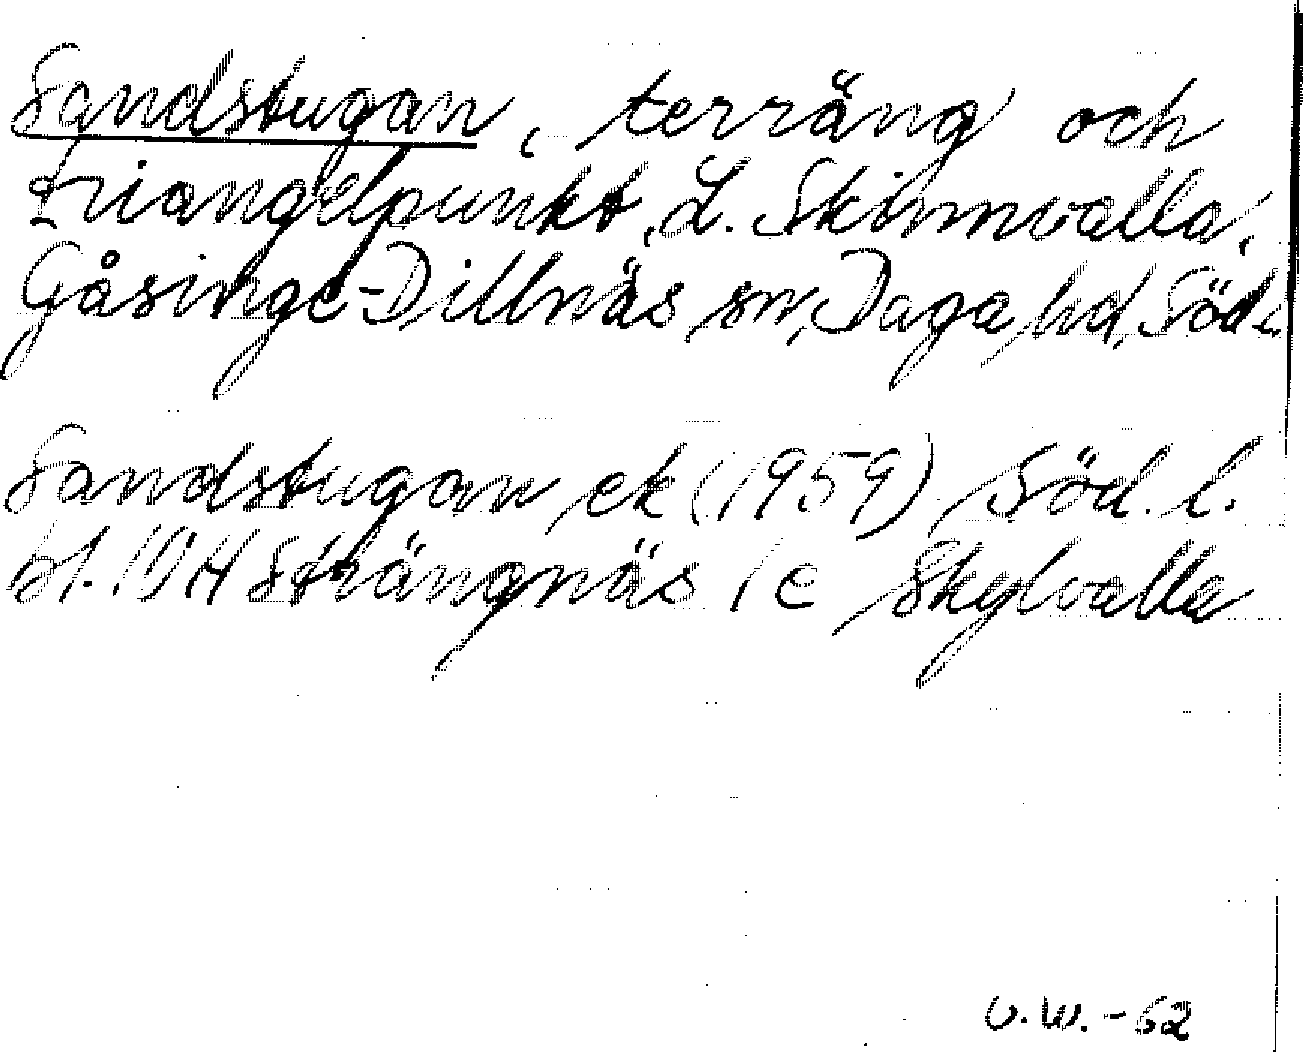 Sandstugan, terräng och
triangelpunkt, L. Skinnvalla,
Gåsinge-Dillnäs sn, Daga hd, Söd.
Sandstugan ek (1959) Söd. l.
bl. 10H Strängnäs 1c Skylvalla
V.W.-62